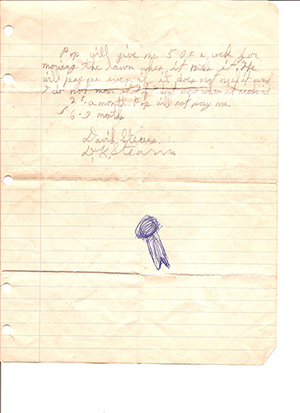 Pop will give me 50¢ a week for
mowing the lawn when it needs it. He
will pay me even if it does not need it and
I do not mow it. If I do not mow it when it needs it
2 a month Pop will not pay me.
6-7 months
David Stearns
D.K. Stearns